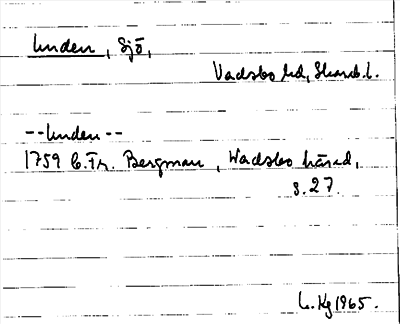 Unden, Sjö,
Vadsbo hd, Skarab. l.
--Unden--
1759 C. Fr. Bergman, Wadsbo härad,
s. 27.
L. Kg 1965.